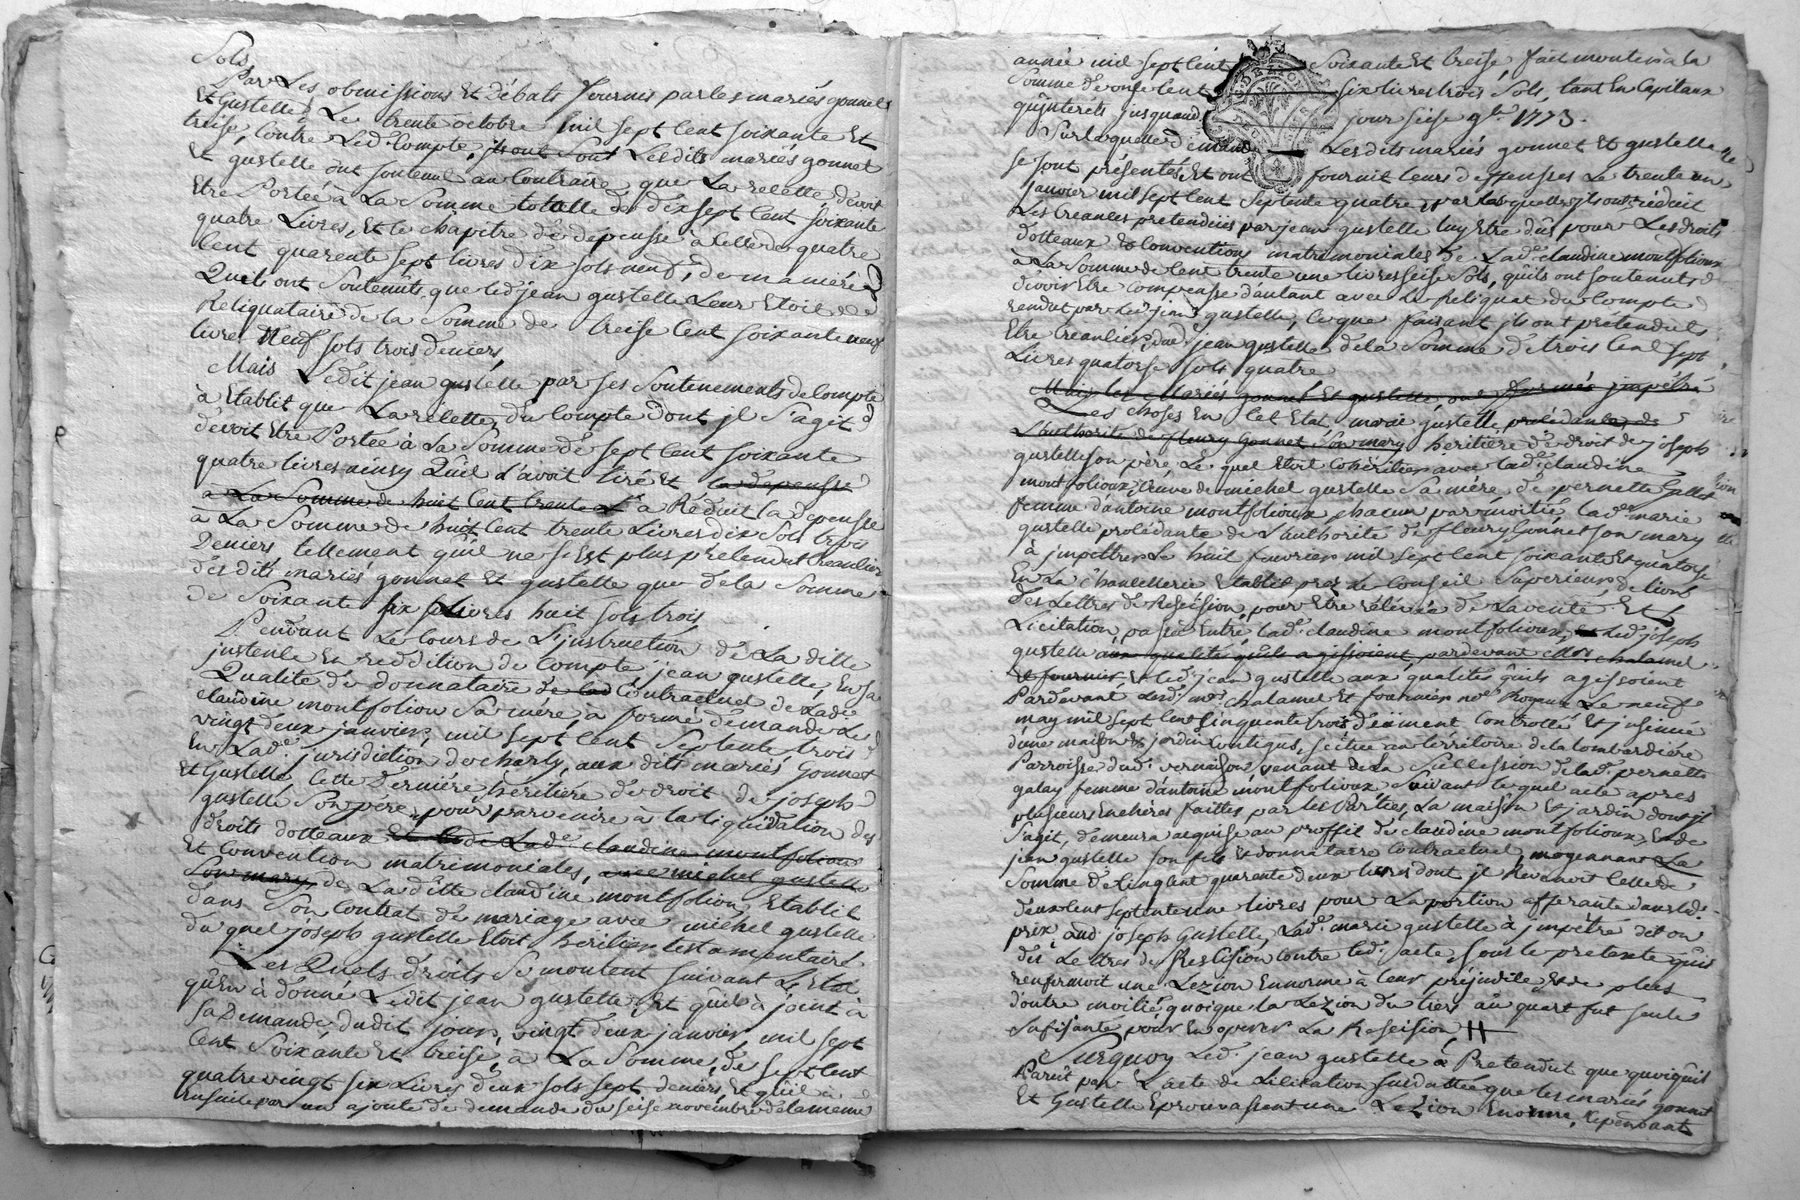 Sols
Par Les obmissions Et Débats fournis par les mariés gonnet
Et Gustelle Le trente octobre mil sept Cent soixante Et
treise, Contre Led. Compte, ils ont Sont Lesdits mariés gonnet
Et gustelle ont soutenu au Contraire que La recette devoit
Etre Portée à La Somme totalle de dix sept Cent soixante
quatre Livres, Et le chapitre de depense à Celle de quatre
Cent quarente sept livres dix sols neuf, de maniere
Quils ont Soutenüe que led. jean gustelle Leur Etoit
Reliquataire de la Somme de treise Cent soixante neuf
livres Neuf sols trois deniers,
Mais Ledit jean gustelle par ses Soutenements de Compte
à Etablit que La recette du Compte dont jl S'agit
devoit Etre Portée à La Somme de sept Cent soixante
quatre livres ainsy Qu'il L'avoit tiré Et la depense
a La Somme de huit Cent trente L. a Réduit la depense
à La Somme de huit Cent trente Livres dix Sols trois
Deniers, tellement qu'il ne s'Est plus prétendu Creancier
desdits mariés gonnet Et gustelle que de la Somme
de Soixante six Livres huit sols trois
Pendant Le Cours de L'justruction de La ditte
justence En reddition de Compte, jean gustelle, En sa
Qualité de donnataire de lad Contractuel de Lade
claudine montfolion Sa mere, à formé demande Le
vingt deux janvier, mil sept Cent Septente trois
En Lade jurisdiction de charly, aux dits mariés Gonnet
Et Gustelle Cette Derniere héritiere de droit de joseph
gustelle Son pere, pour parvenire à la liquidation des
droits dotteaux Et de Lade claudine montfolioux
Et Convention matrimoniales, avec michel gustelle
Son mary, de La ditte claudine montfolion, Etablit
dans Son Contrat de mariage avec michel gustelle
du quel joseph gustelle Etoit heritier testamentaire.
Les Quels droits Se montent suivant L'Etat
qu'En à donné Ledit jean gustelle, Et quil à joint à
sa Demande, dudit jour, vingt deux janvier mil sept
Cent Soixante Et treise, à La Somme, de sept Cent
quatre vingt six Livres deux sols sept deniers, Et quil à
Ensuite par un ajouté de demande du seise novembre de la meme
année mil sept Cent Soixante Et treise fait monter à la
Somme de onse Cent six livres trois Sols, tant En Capitaux
qu'jnterets jusquaud. jour seise 9bre 1773.
Sur laquelle demande Lesdits mariés gonnet Et gustelle
se sont présentés, Et ont fournit leurs deffenses Le trente un
janvier mil sept Cent Septente quatre, par lesquelles jls ont réduit
Les Creances prétendües par jean gustelle luy Etre düs pour Les droits
dotteaux & Conventions matrimoniales de Lade claudine montfolioux
à La Somme de Cent trente une livres seise Sols, quils ont soutenüs
devoir Etre Compensée d'autant avec Le Reliquat du Compte
rendu par led. jean gustelle, Ce que faisant jls ont prétendu
Etre Creanciers dud. jean gustelle de la Somme de trois Cent sept
Livres quatorse sols quatre
Mais les Mariés gonnet Et gustelle ont formés jmpétré
Les choses En Cet Etat, marie gustelle, procédante de
L'authorité de fleury Gonnet Son mary heritiere de droit de joseph
gustelle son père, Le quel Etoit Cohéritier avec lade claudine
montfolioux, veuve de michel gustelle Sa mére, de pernette Gallet
femme d'antoine montfolioux, chacun par moitié, lade marie
gustelle procédante de L'authorité de fleury Gonnet son mary
à jmpettrer Le huit fevrier mil sept Cent soixante Et quatorse
En La chancellerie Etablie pres Le Conseil Superieur, de lion
Des Lettres de Rescision, pour Etre rélévée de La vente Et
Licitation, passée Entre lade claudine montfolioux, Et led. joseph
gustelle aux qualités quils agissoient, pardevant Mes chalamel
Et fournier Et led. jean gustelle aux qualités quils agissoient
Pardevant Lesd. mes chalamel Et fournier nores Royaux Le neuf
may mil sept Cent Cinquente trois düement Controllé Et jnsinué
d'une maison & jardin Contigus, scitué au térritoire de la lombardiere
Parroisse dud. vernaison, venant de La Succession de lade pernette
galay femme d'antoine montfolioux Suivant lequel acte apres
plusieurs Encheres faittes par les Parties, La maison Et jardin dont jl
S'agit, demeura acquise au proffit de claudine montfolioux, Et de
jean gustelle son fils & donnataire Contractuel, moyennant La
Somme de Cinq Cent quarente deux livres dont jl Revenoit Celle de
deux Cent septente une livres pour La portion afferante dans led.
prix, aud. joseph Gustelle, Lade marie gustelle à jmpétré dit on
des Lettres de Rescision Contre led. acte, sous le pretexte qu'il
renfermoit une Lezion Ennorme à leur préjudice, & de plus
d'outre moitié quoique la Lezion du tiers au quart fut seule
sufisante, pour En operer La Rescision
Surquoy Led. jean gustelle à Pretendut que quoiqu'il
Parut par L'acte de Licitation susdattée que les mariés gonnet
Et Gustelle Eprouvassent une Lezion Enorme, Cependant